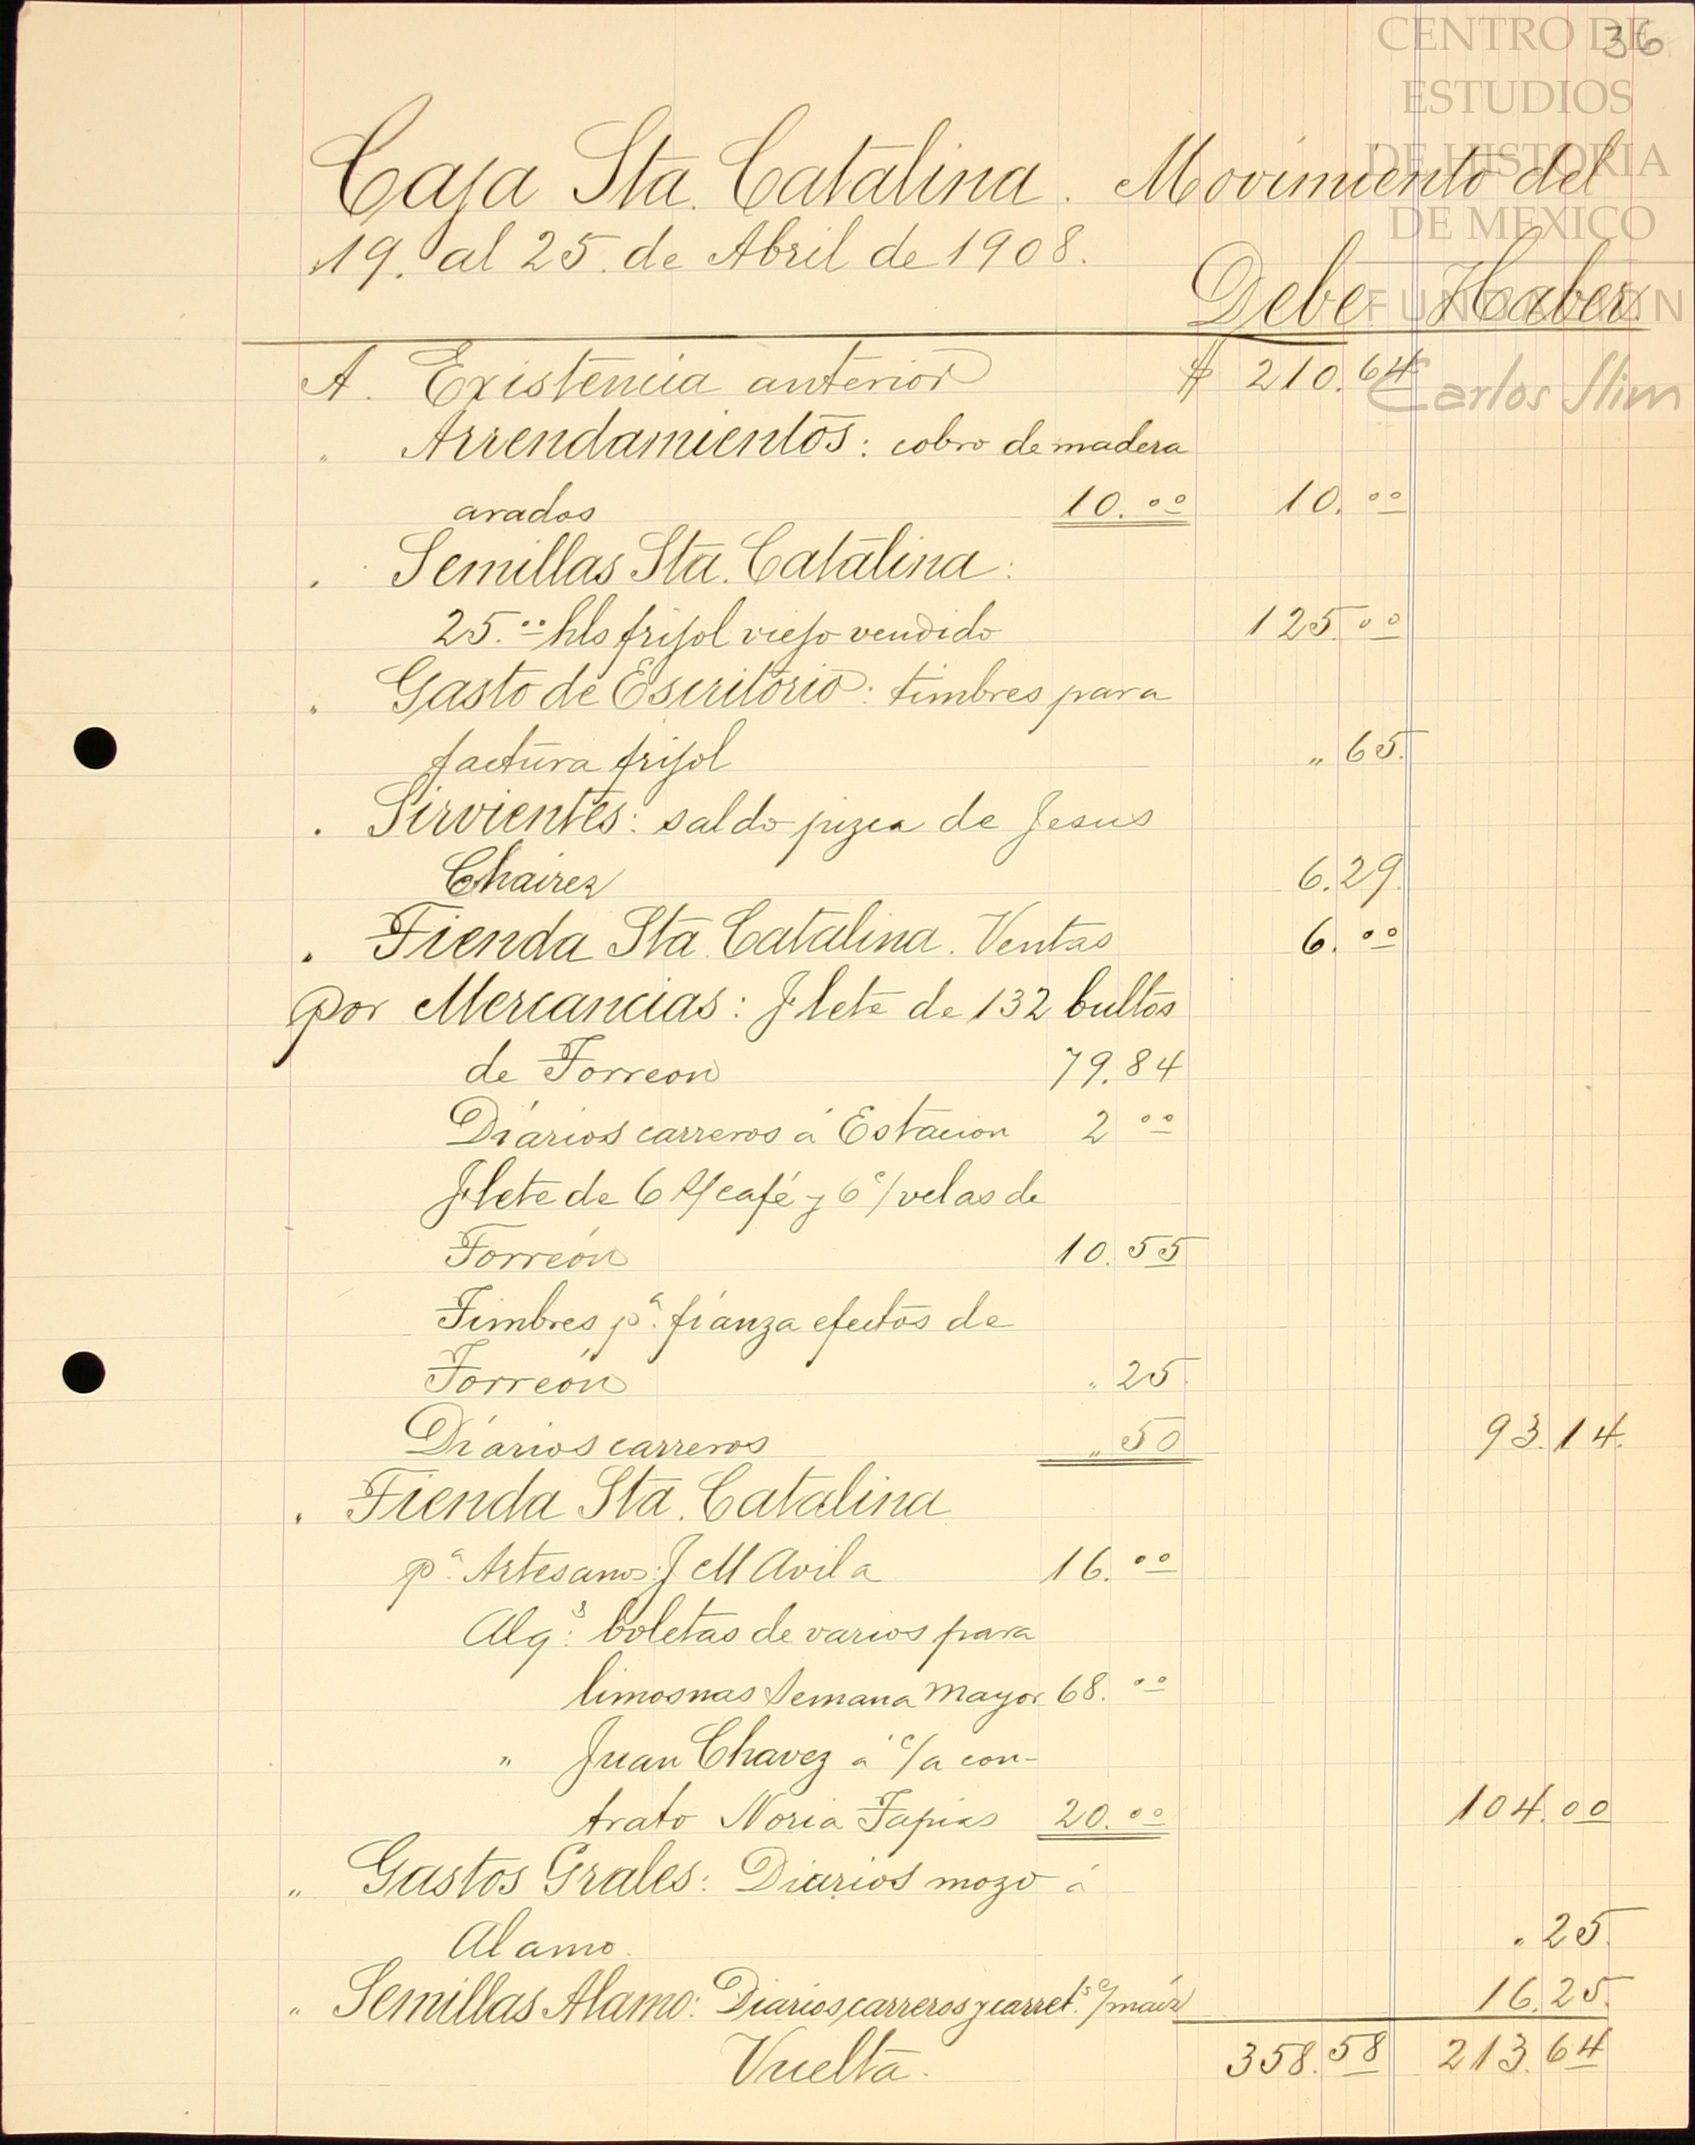 36
CENTRO DE
ESTUDIOS
DE HISTORIA
DE MEXICO
FUNDACIÓN
Carlos Slim
Caja Sta. Catalina. Movimiento del
19. al 25. de Abril de 1908.
Debe Haber
A. Existencia anterior $ 210.64
" Arrendamientos: cobro de madera
arados 10.00 10.00
" Semillas Sta. Catalina:
25.00 hls frijol viejo vendido 125.00
" Gasto de Escritorio: timbres para
factura frijol " 65.
" Sirvientes: saldo pizca de Jesus
Chairez 6.29.
" Tienda Sta. Catalina. Ventas 6.00
Por Mercancias: Flete de 132 bultos
de Torreon 79.84
Diários carreros á Estacion 2 00
Flete de 6 s/ café y 6 c/ velas de
Torreón 10.55
Timbres pa. fianza efectos de
Torreón " 25.
Diários carreros " 50 93.14.
" Tienda Sta. Catalina
pa. Artesanos: J M Avila 16.00
Alqs: boletas de varios para
limosnas Semana Mayor 68.00
" Juan Chavez á c/a con-
trato Noria Tapias 20.00 104.00
" Gastos Grales: Diarios mozo á
Alamo. " 25.
" Semillas Alamo: Diarios carreros y carret.s c/ maíz 16.25.
Vuelta. 358.58 213.64